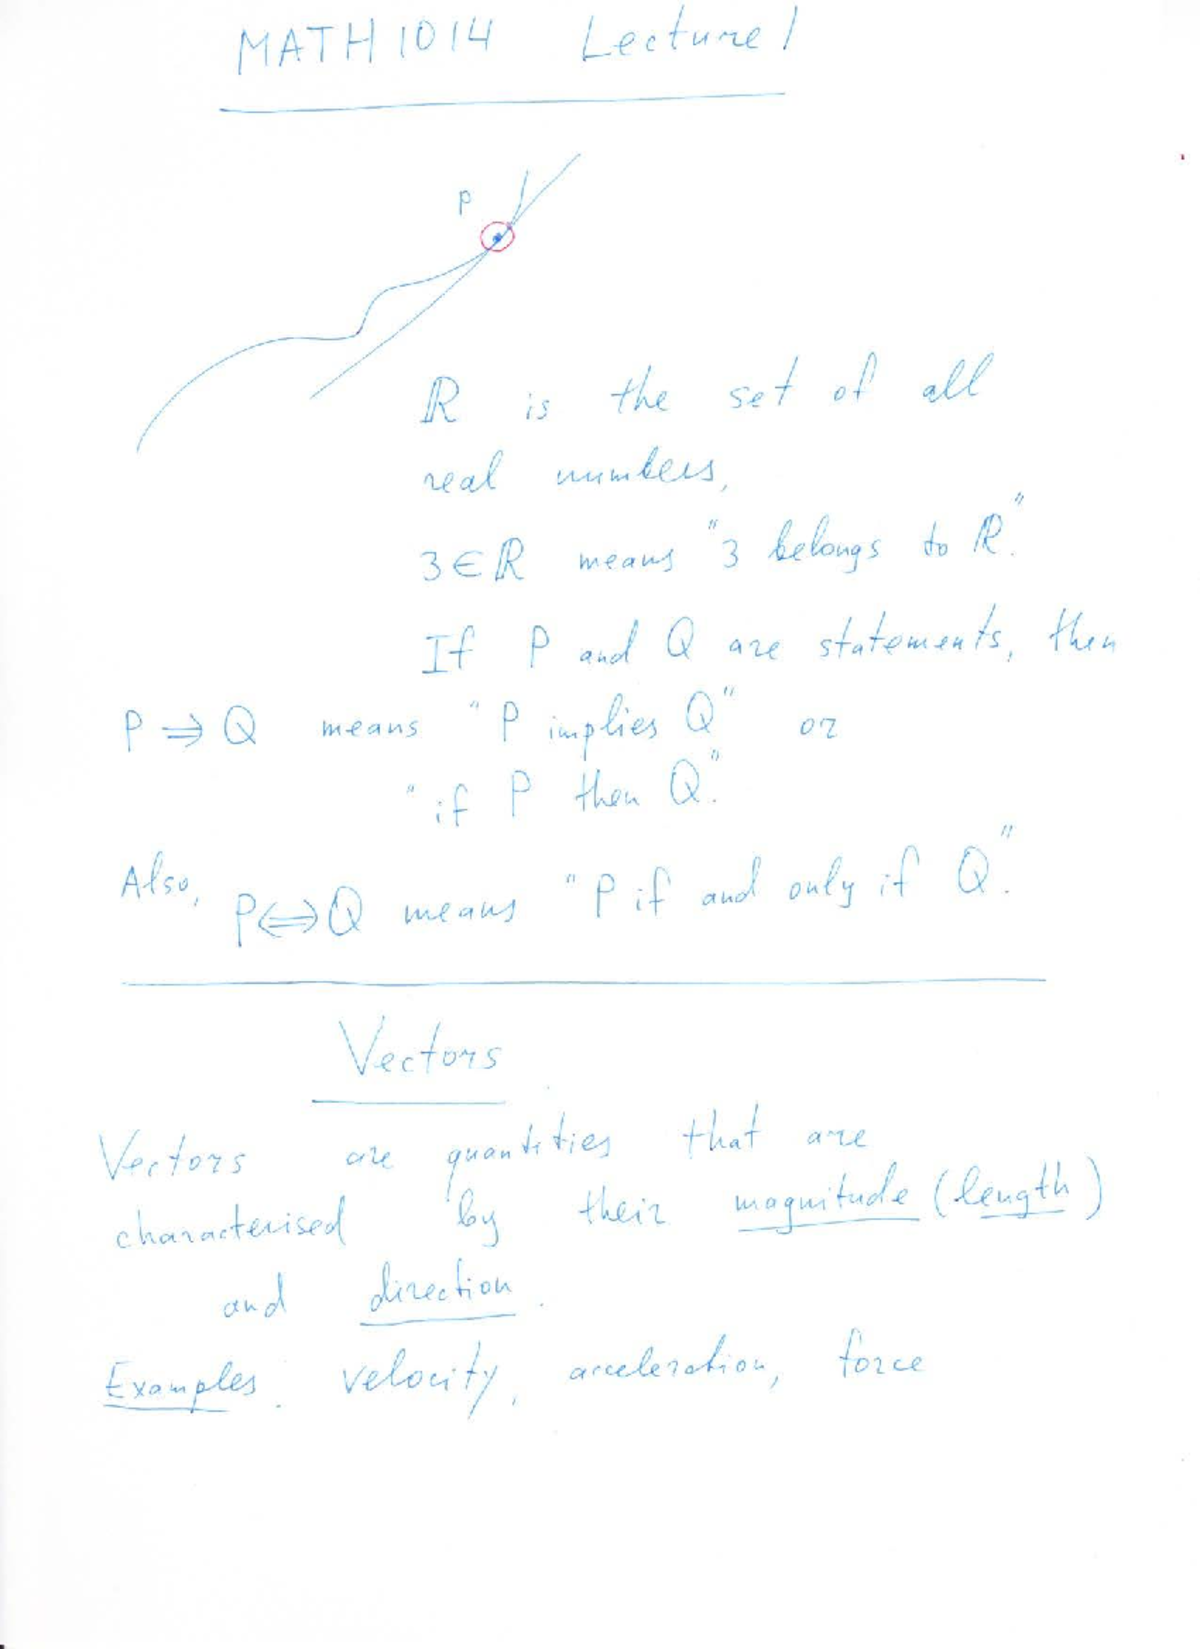 MATH1014 Lecture 1
P
ℝ is the set of all
real numbers,
3∈ℝ means "3 belongs to ℝ."
If P and Q are statements, then
P ⇒ Q means "P implies Q" or
"if P then Q."
Also, P⇔Q means "P if and only if Q."
Vectors
Vectors are quantities that are
characterised by their magnitude (length)
and direction.
Examples: velocity, acceleration, force